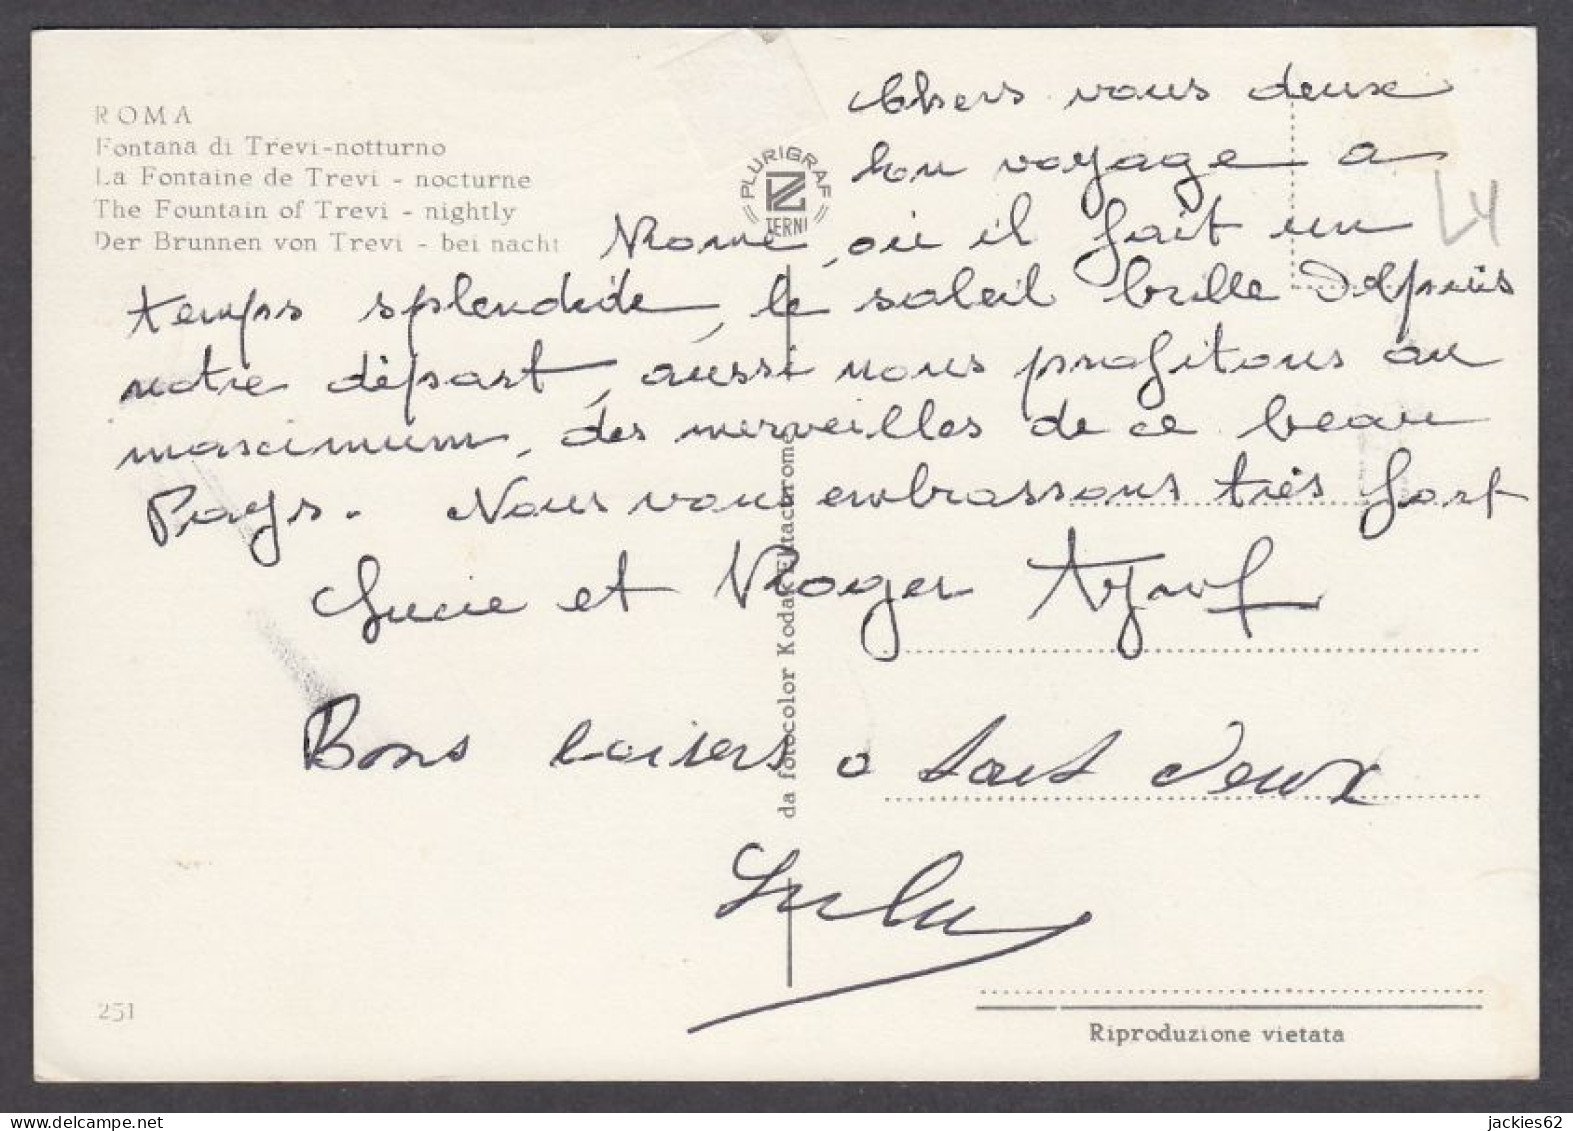 ROMA
Fontana di Trevi-notturno
La Fontaine de Trevi - nocturne
The Fountain of Trevi - nightly
Der Brunnen von Trevi - bei nacht
PLURIGRAF
TERNI
Chers vous deux
bon voyage a
Rome, où il fait un
temps splendide, le soleil brille depuis
notre départ, aussi nous profitons au
maximum, des merveilles de ce beau
Pays. Nous vous embrassons très fort
Lucie et Roger
Bons baisers a tout deux
Lulu
da fotocolor Kodak Ektachrome
251
Riproduzione vietata
jackies62